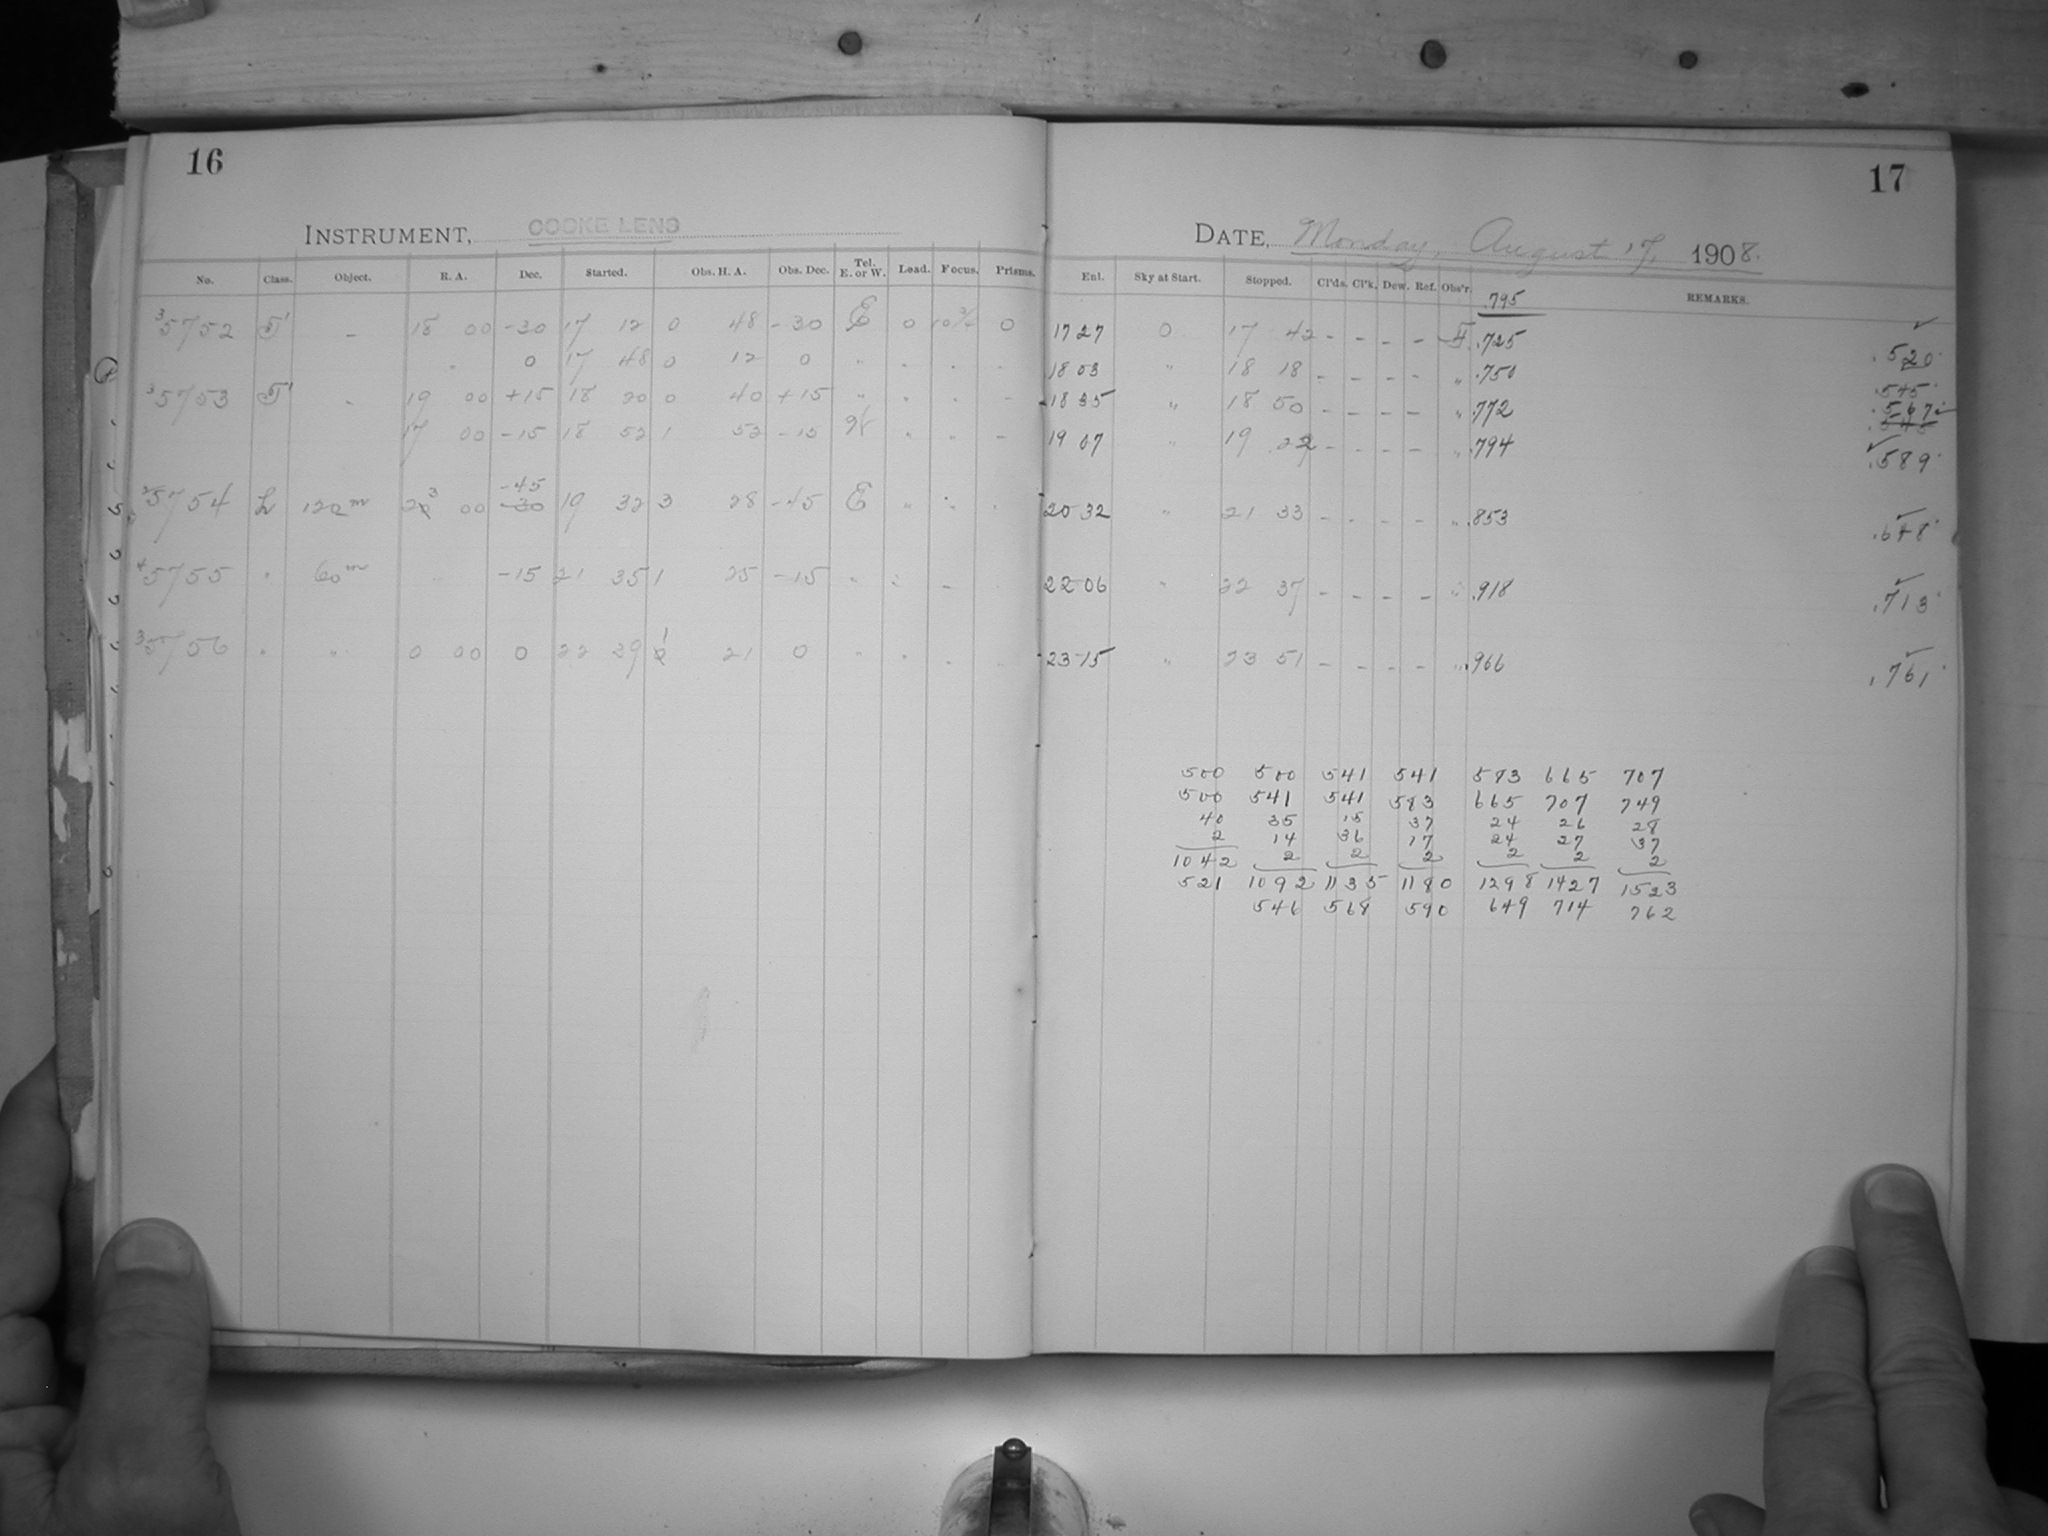 16
INSTRUMENT, COOKE LENS
No. Class. Object. R. A. Dec. Started. Obs. H. A. Obs. Dec. Tel. E. or W. Load. Focus. Prisms.
35752 - 18 00 -30 17 12 0 48 -30 E 0 0
" 0 17 48 0 12 0 " " " "
35753 - 19 00 +15 18 20 0 40 +15 " " " -
17 00 -15 18 52 1 52 -15 W " " -
-45
5754 L 120m 23 00 -30 19 32 3 28 -45 E " " "
5755 " 60m " -15 21 35 1 25 -15 " " -
35756 " " 0 00 0 22 29 1 21 0 " " "
17
DATE, Monday, August 17, 1908.
Enl. Sky at Start. Stopped. Cl'ds. Cl'k. Dew. Ref. Obs'r. .795 REMARKS.
17 27 0 17 42 - - - - .725 .520
18 03 " 18 18 - - - - " .750 .545
18 35 " 18 50 - - - - " .772 .567
19 07 " 19 22 - - - - " .794 .589
20 32 " 21 33 - - - - " .853 .648
22 06 " 22 37 - - - - " .918 .713
23 15 " 23 51 - - - - " .966 .761
500 500 541 541 583 665 707
500 541 541 583 665 707 749
40 35 15 37 24 26 28
2 14 36 17 24 27 37
1042 2 2 2 2 2 2
521 1092 1135 1180 1298 1427 1523
546 568 590 649 714 762